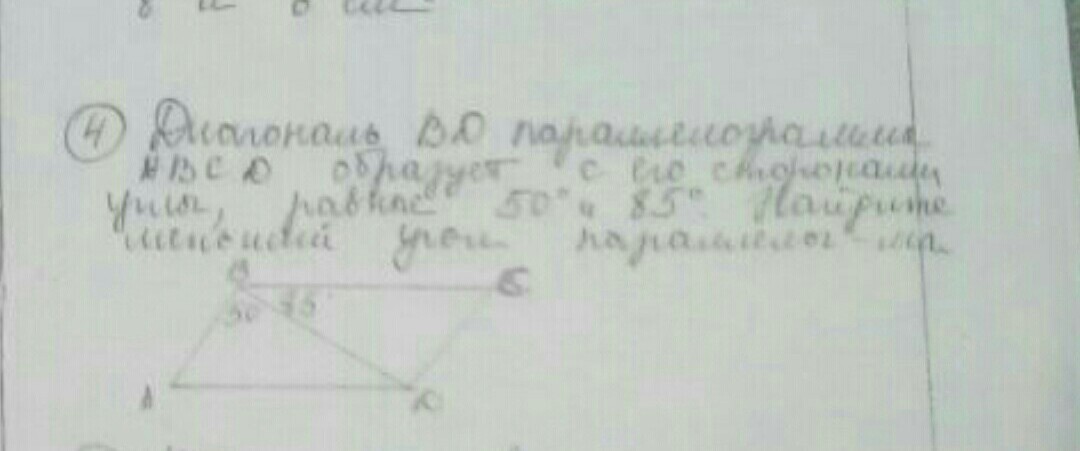 8 и 6 см
④ Диагональ BD параллелограмма
ABCD образует с его сторонами
углы, равные 50° и 85°. Найдите
меньший угол параллелог-ма
B C
50 85
A D